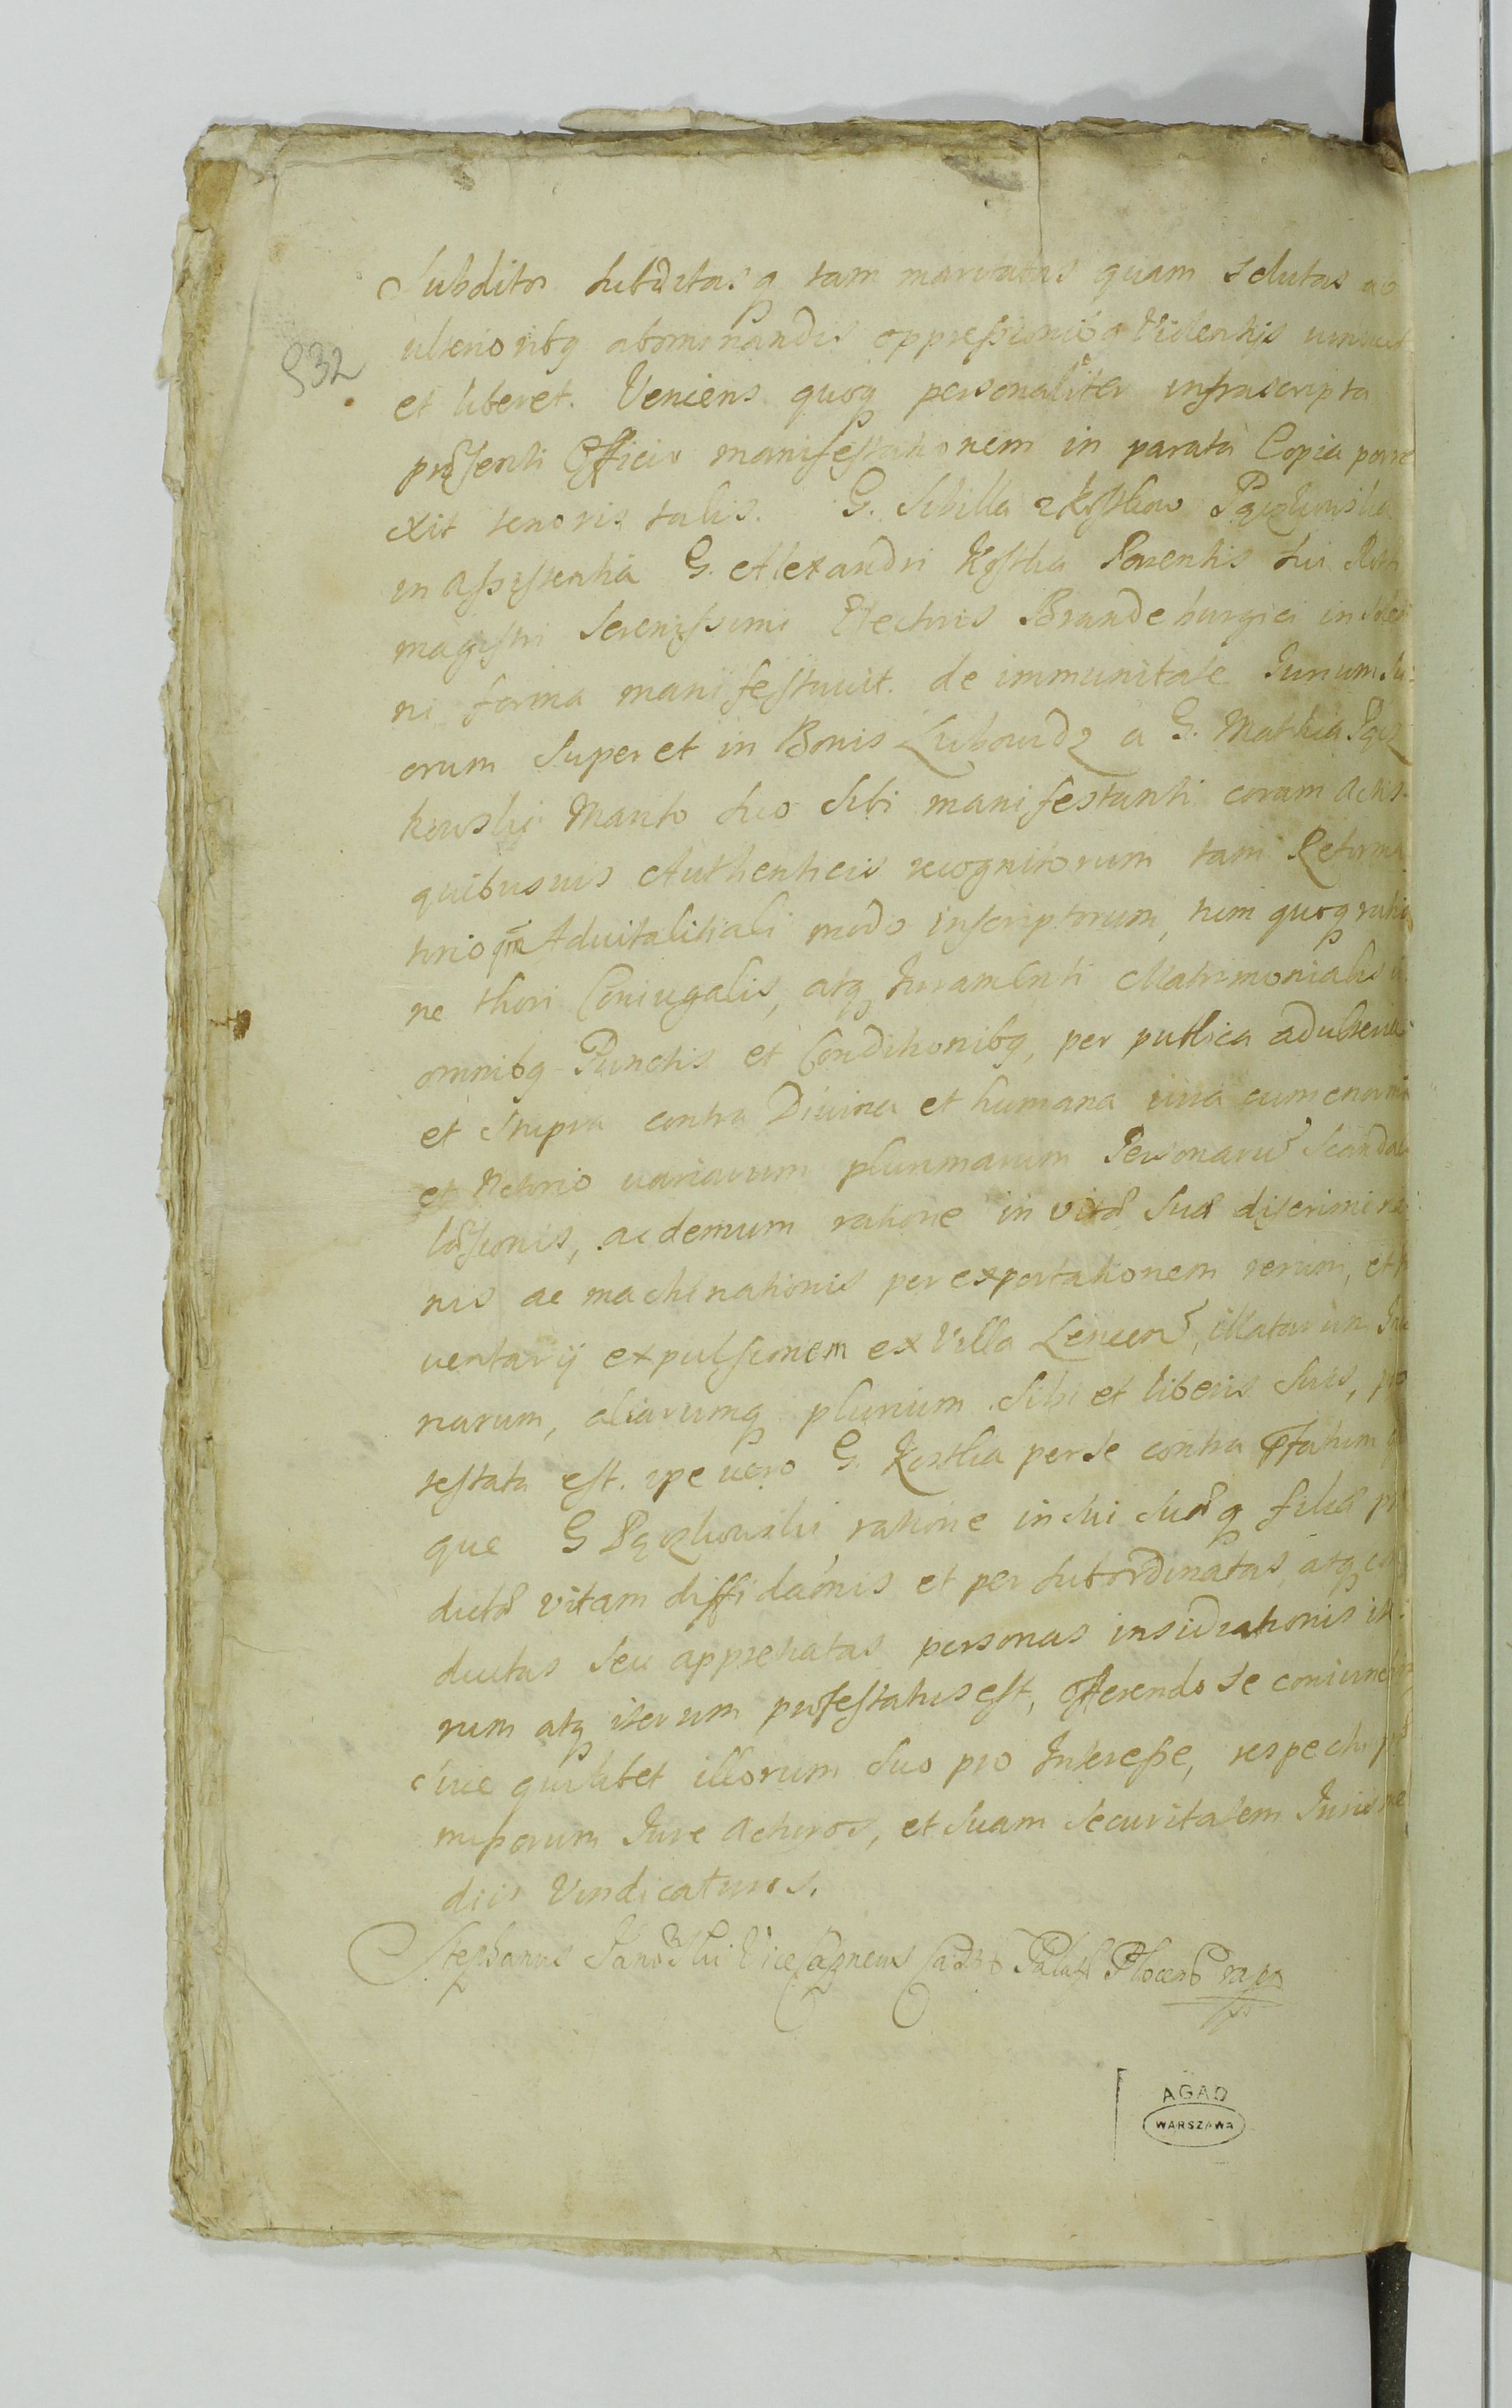 Subditos subditasq tam maritatas quam solutas ab
ulterioribq abominandis oppressionibq Violentijs
et liberet. Veniens quoq personaliter infrascripta
præsenti Officio manifestationem in parata Copia porre
xit tenoris talis. G. Sibilla z kostkow
in assistentia G. Alexandri Kostka Parentis sui
magistri Serenissimi Electoris Brandeburgici in
ni forma manifestauit. de immunitate Iurium Su
orum super et in Bonis Lubowidz a G. Mathia
kowski Marito suo sibi manifestanti coram Actis
quibusuis Authenticis recognitorum tam Reforma
torio qm Aduitalitiali modo inscriptorum, tum quoq ratio
ne thori Coniugalis, atq Iuramenti Matrimonialis in
omnibq Punctis et Conditionibq, per publica adulteria
et stupra contra Diuina et humana iura cum enormi
et notorio variarum plurimarum Personarũ Scanda
læsionis, ac demum ratione in vitæ suæ discrimi
nis ac machinationis per exportationem rerum, et
uentarij expulsionem ex Villa illatarum
rarum, aliarumq plurium sibi et liberis suis, pro
testata est. ipe uero G. Kostka per se contra
que G ratione in sui suæq filiæ præ
dictæ vitam diffidaõnis et per subordinatas, atq con
ductas seu appretiatas personas insidiationis ite
rum atq iterum protestatus est, offerendo se coniunctim
siue quilibet illorum suo pro Interesse, respectu
missorum Iure acturos, et suam securitatem Iuris re
diis Vindicaturos.
Stephanus ViceCapneus
932
AGAD
WARSZAWA